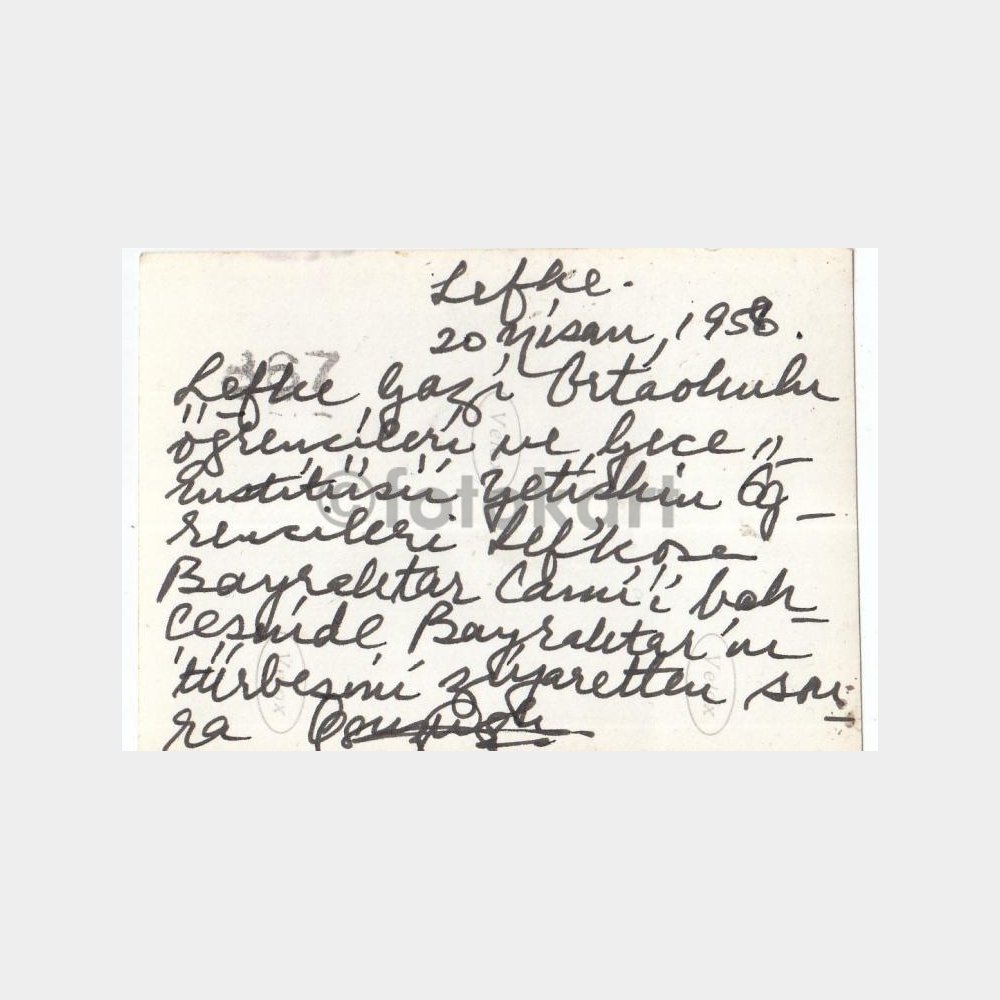 Lefke.
20 Nisan, 1958.
187
Lefke Gazi Ortaokulu
öğrencileri ve Gece
Enstitüsü Yetişkin Öğ_
rencileri Lefkoşa
Bayraktar Camii bah_
çesinde Bayraktar'ın
türbesini ziyaretten son_
ra
Velox
Velox
Velox
©fotokart